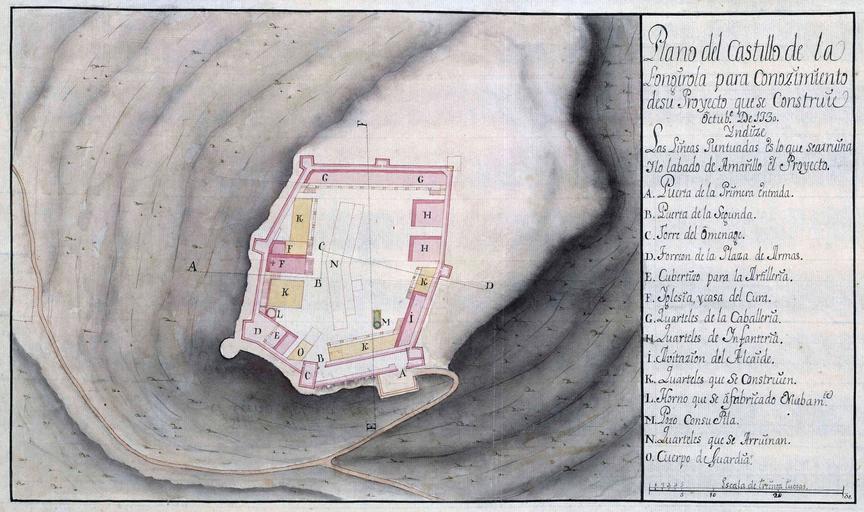 Plano del Castillo de la
Fongirola para Conozimiento
desu Proyecto que se Construie
Octub.^e De 1730.
Yndize
Las Lineas Puntuadas es lo que searruina
Y lo labado de Amarillo èl Proyecto.
A. Puerta de la Primera entrada.
B. Puerta de la Segunda.
C. Torre del Omenage.
D. Torreon de la Plaza de Armas.
E. Cubertizo para la Artilleria.
F. Yglesia, y casa del Cura.
G. Quarteles de la Caballeria.
H. Quarteles de Infanteria.
I. Avitazion del Alcaide.
K. Quarteles que Se Construien.
L. Horno que se á fabricado
M. Pozo Consu Pila.
N. Quarteles que se Arruinan.
O. Cuerpo de Guardia.
Escala de treinta tuesas.
5 10 20 30
F
G G
K H
F C H
A F N
B K D
K
L I
D E M
O B K
C A
E